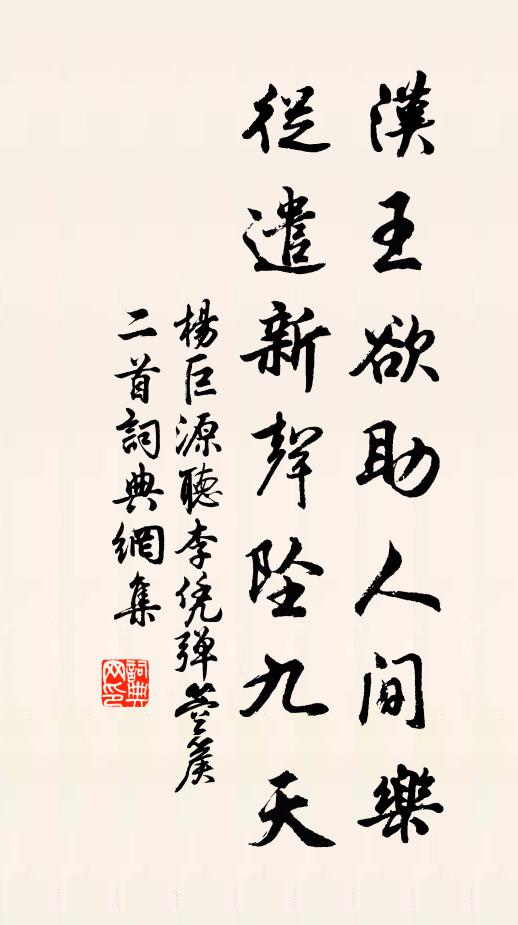 漢王欲助人間樂
從遣新聲墜九天
楊巨源聽李凭彈箜篌
二首詞典網集
詞典
网印